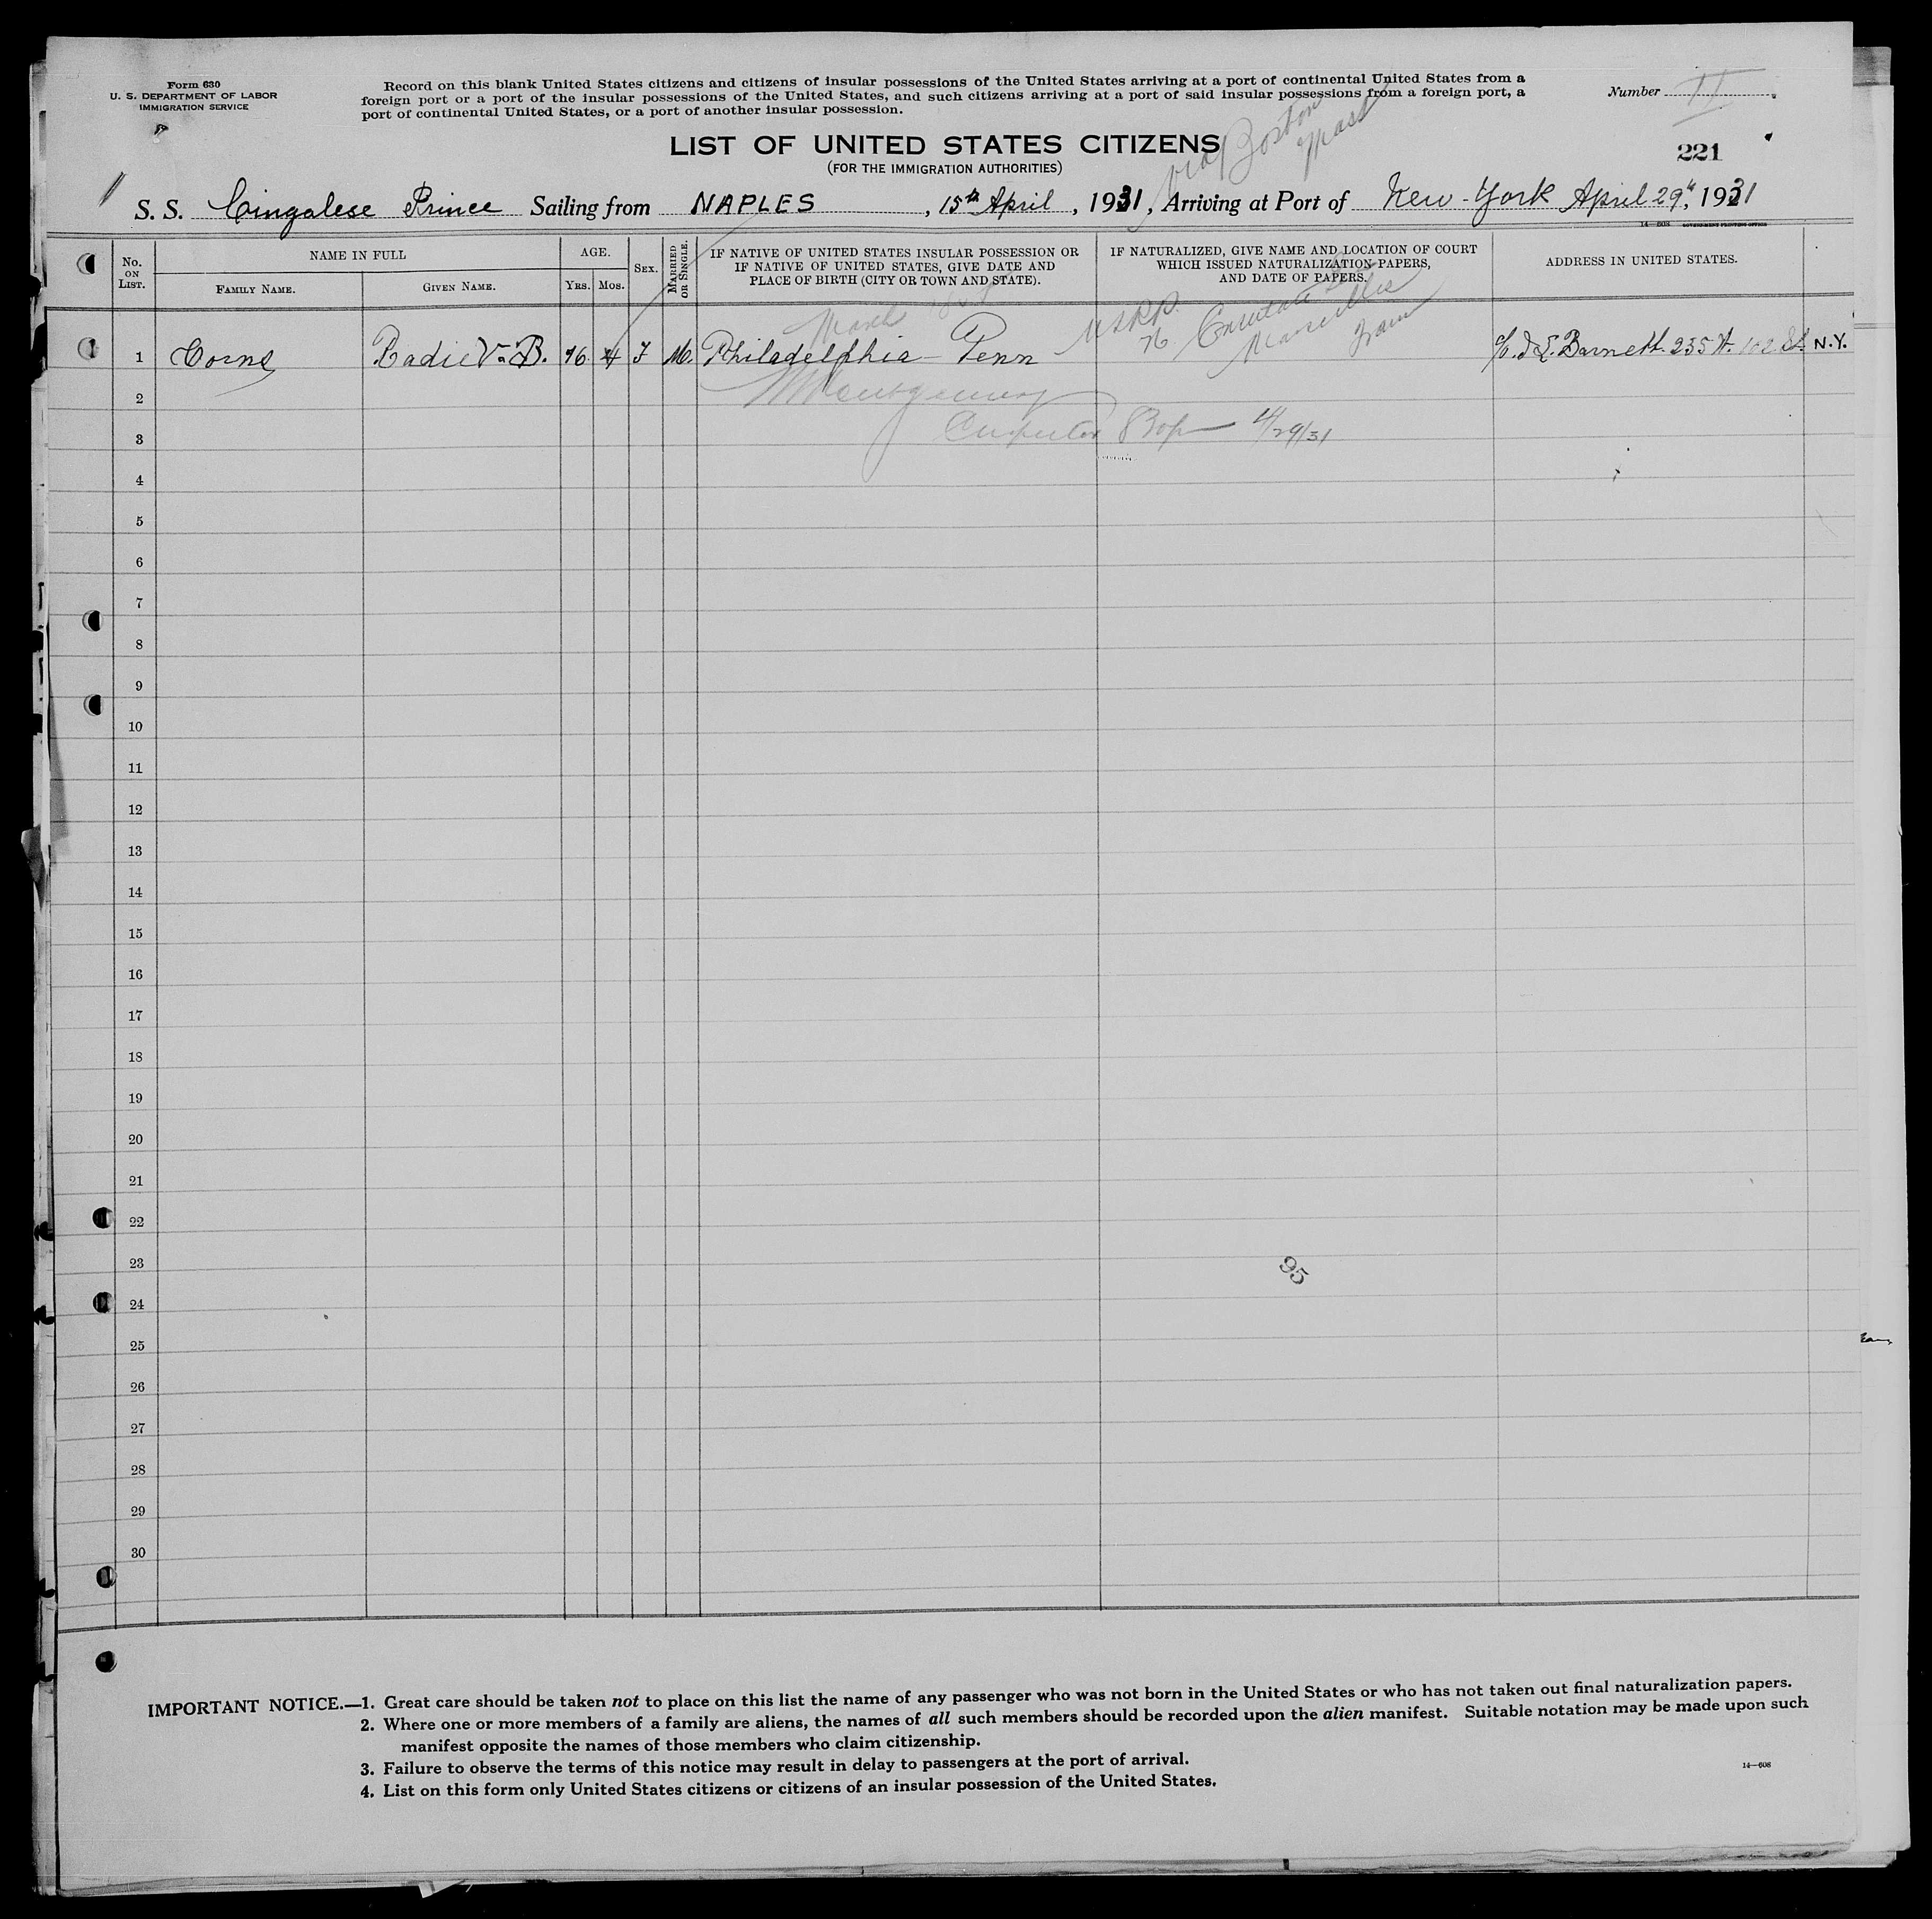 Form 630
U. S. DEPARTMENT OF LABOR
IMMIGRATION SERVICE
Record on this blank United States citizens and citizens of insular possessions of the United States arriving at a port of continental United States from a
foreign port or a port of the insular possessions of the United States, and such citizens arriving at a port of said insular possessions from a foreign port, a
port of continental United States, or a port of another insular possession.
Number II
221
LIST OF UNITED STATES CITIZENS
(FOR THE IMMIGRATION AUTHORITIES)
via Boston
Mass
S. S. Cingalese Prince Sailing from NAPLES, 15th April, 1931, Arriving at Port of New-York April 29th, 1931
14—608 GOVERNMENT PRINTING OFFICE
No. ON LIST.
NAME IN FULL
FAMILY NAME.
GIVEN NAME.
AGE.
YRS. MOS.
SEX.
MARRIED OR SINGLE.
IF NATIVE OF UNITED STATES INSULAR POSSESSION OR
IF NATIVE OF UNITED STATES, GIVE DATE AND
PLACE OF BIRTH (CITY OR TOWN AND STATE).
IF NATURALIZED, GIVE NAME AND LOCATION OF COURT
WHICH ISSUED NATURALIZATION PAPERS,
AND DATE OF PAPERS.
ADDRESS IN UNITED STATES.
March
1 Philadelphia - Penn 76 Marseilles Barnett. 235 W. 102 St. N.Y.
Montgomery
Inspector 4/29/31
2
3
4
5
6
7
8
9
10
11
12
13
14
15
16
17
18
19
20
21
22
23
95
24
25
26
27
28
29
30
IMPORTANT NOTICE.—1. Great care should be taken not to place on this list the name of any passenger who was not born in the United States or who has not taken out final naturalization papers.
2. Where one or more members of a family are aliens, the names of all such members should be recorded upon the alien manifest. Suitable notation may be made upon such
manifest opposite the names of those members who claim citizenship.
3. Failure to observe the terms of this notice may result in delay to passengers at the port of arrival.
4. List on this form only United States citizens or citizens of an insular possession of the United States.
14—608